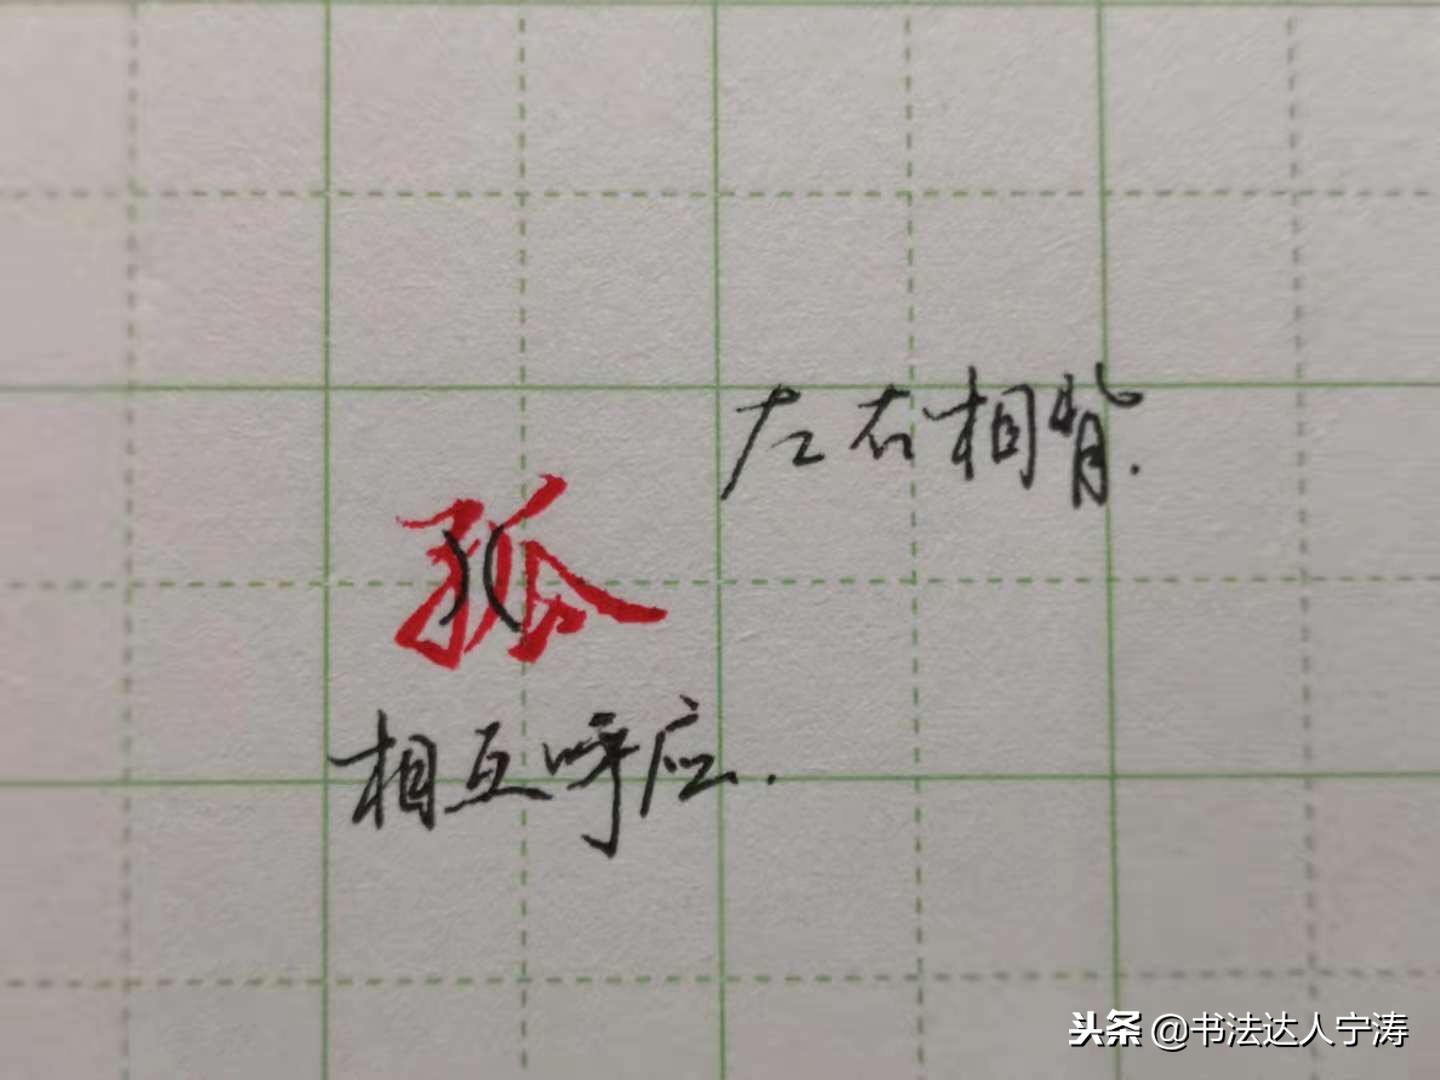 左右相背.
孤
相互呼应.
头条 @书法达人宁涛